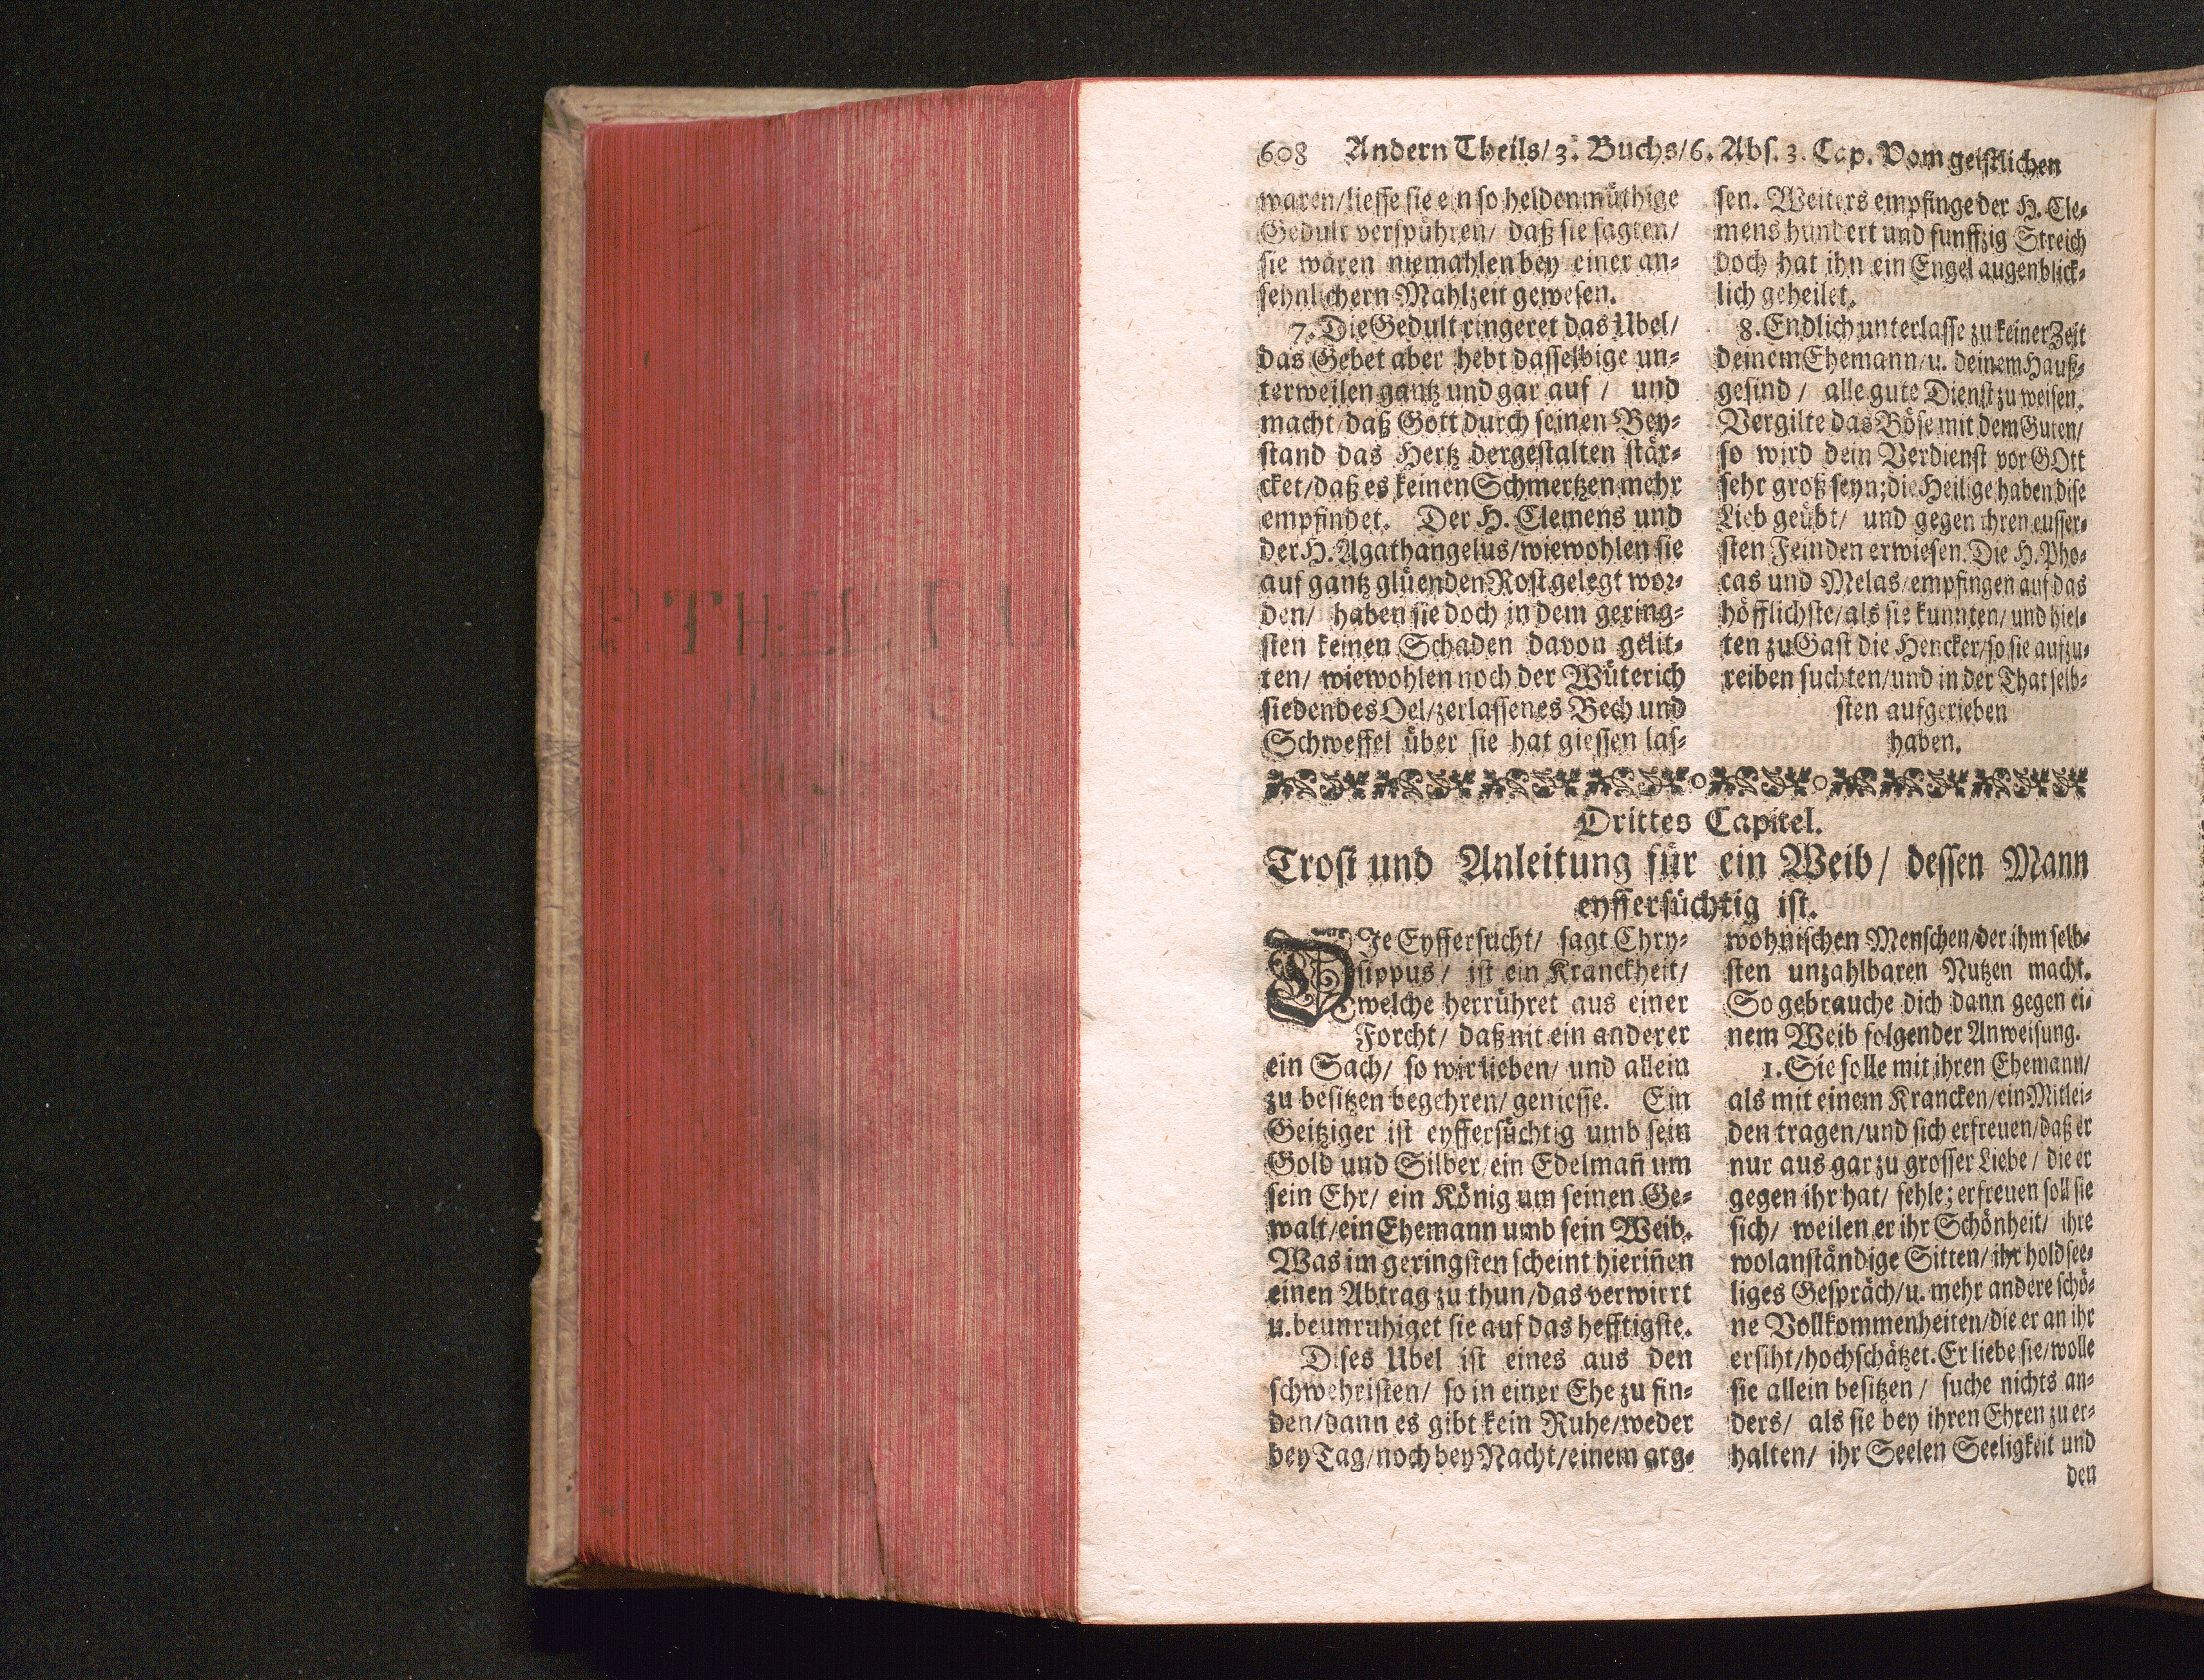 608 Andern Theils/ 3. Buchs/ 6. Abs. 3. Cap. Vom geistlichen
waren/ liesse sie ein so heldenmüthige
Gedult verspühren/ daß sie sagten/
sie wären niemahlen bey einer an-
sehnlichern Mahlzeit gewesen.
7. Die Gedult ringeret das Ubel/
das Gebet aber hebt dasselbige un-
terweilen gantz und gar auf / und
macht/ daß Gott durch seinen Bey-
stand das Hertz dergestalten stär-
cket/ daß es keinen Schmertzen mehr
empfindet. Der H. Clemens und
der H. Agathangelus/ wiewohlen sie
auf gantz glüenden Rost gelegt wor-
den/ haben sie doch in dem gering-
sten keinen Schaden davon gelit-
ten/ wiewohlen noch der Wüterich
siedendes Oel/ zerlassenes Bech und
Schweffel über sie hat giessen las-
sen. Weiters empfinge der H. Cle-
mens hundert und funffzig Streich
doch hat ihn ein Engel augenblick-
lich geheilet.
8. Endlich unterlasse zu keiner Zeit
deinem Ehemann/ u. deinem Hauß-
gesind / alle gute Dienst zu weisen.
Vergilte das Böse mit dem Guten/
so wird dein Verdienst vor GOtt
sehr groß seyn; die Heilige haben dise
Lieb geübt/ und gegen ihren eusser-
sten Feinden erwiesen. Die H. Pho-
cas und Melas/ empfingen auf das
höfflichste/ als sie kunnten/ und hiel-
ten zu Gast die Hencker/ so sie aufzu-
reiben suchten/ und in der That selb-
sten aufgerieben
haben.
Drittes Capitel.
Trost und Anleitung für ein Weib/ dessen Mann
eyffersüchtig ist.
DIe Eyffersucht/ sagt Chry-
sippus/ ist ein Kranckheit/
welche herrühret aus einer
Forcht/ daß nit ein anderer
ein Sach/ so wir lieben/ und allein
zu besitzen begehren/ geniesse. Ein
Geitziger ist eyffersüchtig umb sein
Gold und Silber/ ein Edelmañ um
sein Ehr/ ein König um seinen Ge-
walt/ ein Ehemann umb sein Weib.
Was im geringsten scheint hieriñen
einen Abtrag zu thun/ das verwirrt
u. beunruhiget sie auf das hefftigste.
Dises Ubel ist eines aus den
schwehristen/ so in einer Ehe zu fin-
den/ dann es gibt kein Ruhe/ weder
bey Tag/ noch bey Nacht/ einem arg-
wohnischen Menschen/ der ihm selb-
sten unzahlbaren Nutzen macht.
So gebrauche dich dann gegen ei-
nem Weib folgender Anweisung.
1. Sie solle mit ihren Ehemann/
als mit einem Krancken/ ein Mitlei-
den tragen/ und sich erfreuen/ daß er
nur aus gar zu grosser Liebe / die er
gegen ihr hat/ fehle; erfreuen soll sie
sich/ weilen er ihr Schönheit/ ihre
wolanständige Sitten/ ihr holdsee-
liges Gespräch/ u. mehr andere schö-
ne Vollkommenheiten/ die er an ihr
ersiht/ hochschätzet. Er liebe sie/ wolle
sie allein besitzen / suche nichts an-
ders/ als sie bey ihren Ehren zu er-
halten/ ihr Seelen Seeligkeit und
den